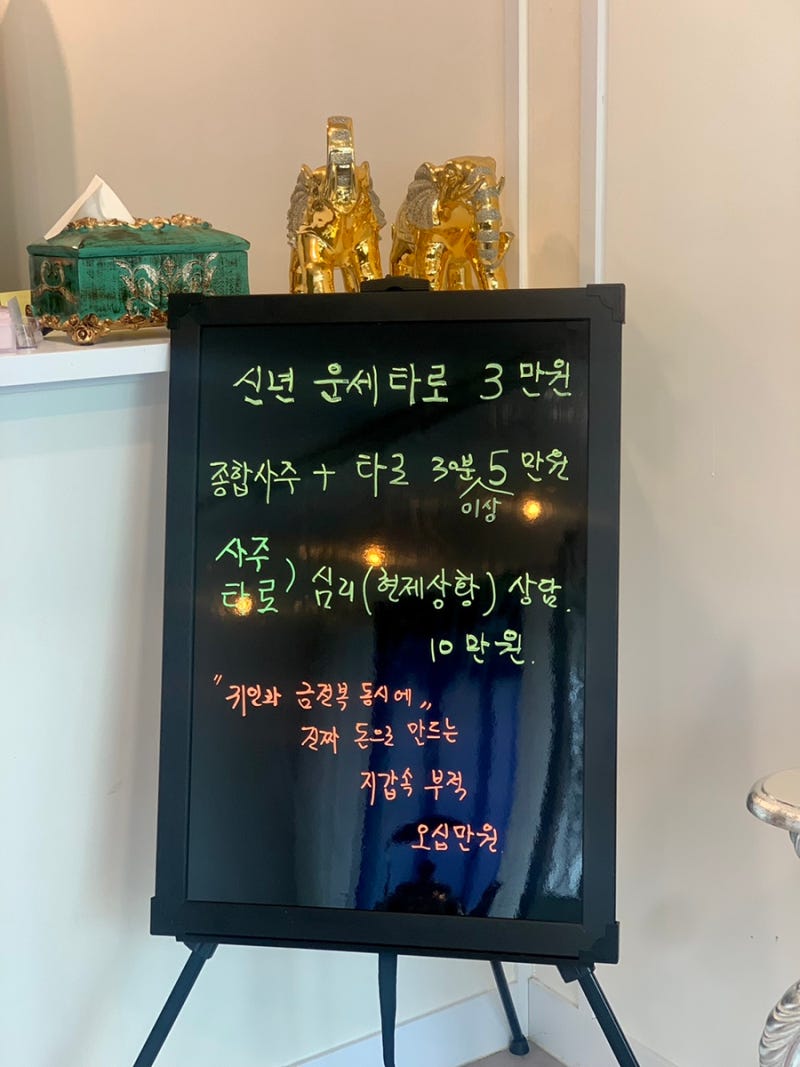 신년 운세타로 3만원
종합사주 + 타로 30분 5만원
이상
사주
타로) 심리(현제상황) 상담.
10만원.
"귀인과 금전복 동시에"
진짜 돈으로 만드는
지갑속 부적
오십만원.